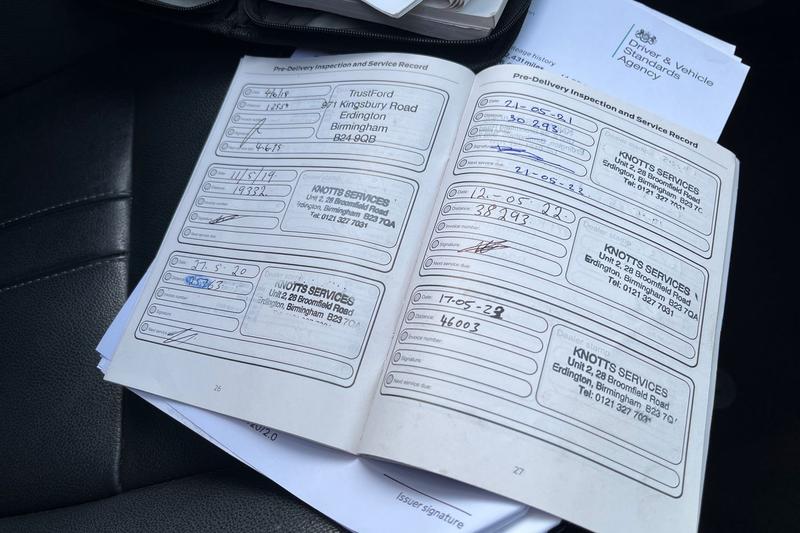 Driver & Vehicle
Standards
Agency
mileage history
Pre-Delivery Inspection and Service Record
Date: 4/6/18
Distance:
TrustFord
971 Kingsbury Road
Erdington
Birmingham
B24 9QB
Date: 11/5/19
Distance: 19382
KNOTTS SERVICES
Unit 2, 28 Broomfield Road
Erdington, Birmingham B23 7QA
Tel: 0121 327 7031
Next service due:
Date: 27.5.20
Distance:
Invoice number:
Signature:
Next service
Dealer stamp
KNOTTS SERVICES
Unit 2, 28 Broomfield Road
Erdington, Birmingham B23 7QA
26
Pre-Delivery Inspection and Service Record
Date: 21-05-21
Distance: 30 293
Signature:
Next service due: 21-05-22
KNOTTS SERVICES
Unit 2, 28 Broomfield Road
Erdington, Birmingham B23 7
Tel: 0121 327 7031
Date: 12-05-22
Distance: 38293
Invoice number:
Signature:
Next service due:
Dealer stamp
KNOTTS SERVICES
Unit 2, 28 Broomfield Road
Erdington, Birmingham B23 7QA
Tel: 0121 327 7031
Date: 17-05-23
Distance: 46003
Invoice number:
Signature:
Next service due:
Dealer stamp
KNOTTS SERVICES
Unit 2, 28 Broomfield Road
Erdington, Birmingham B23 7Q
Tel: 0121 327 7031
27
Issuer signature